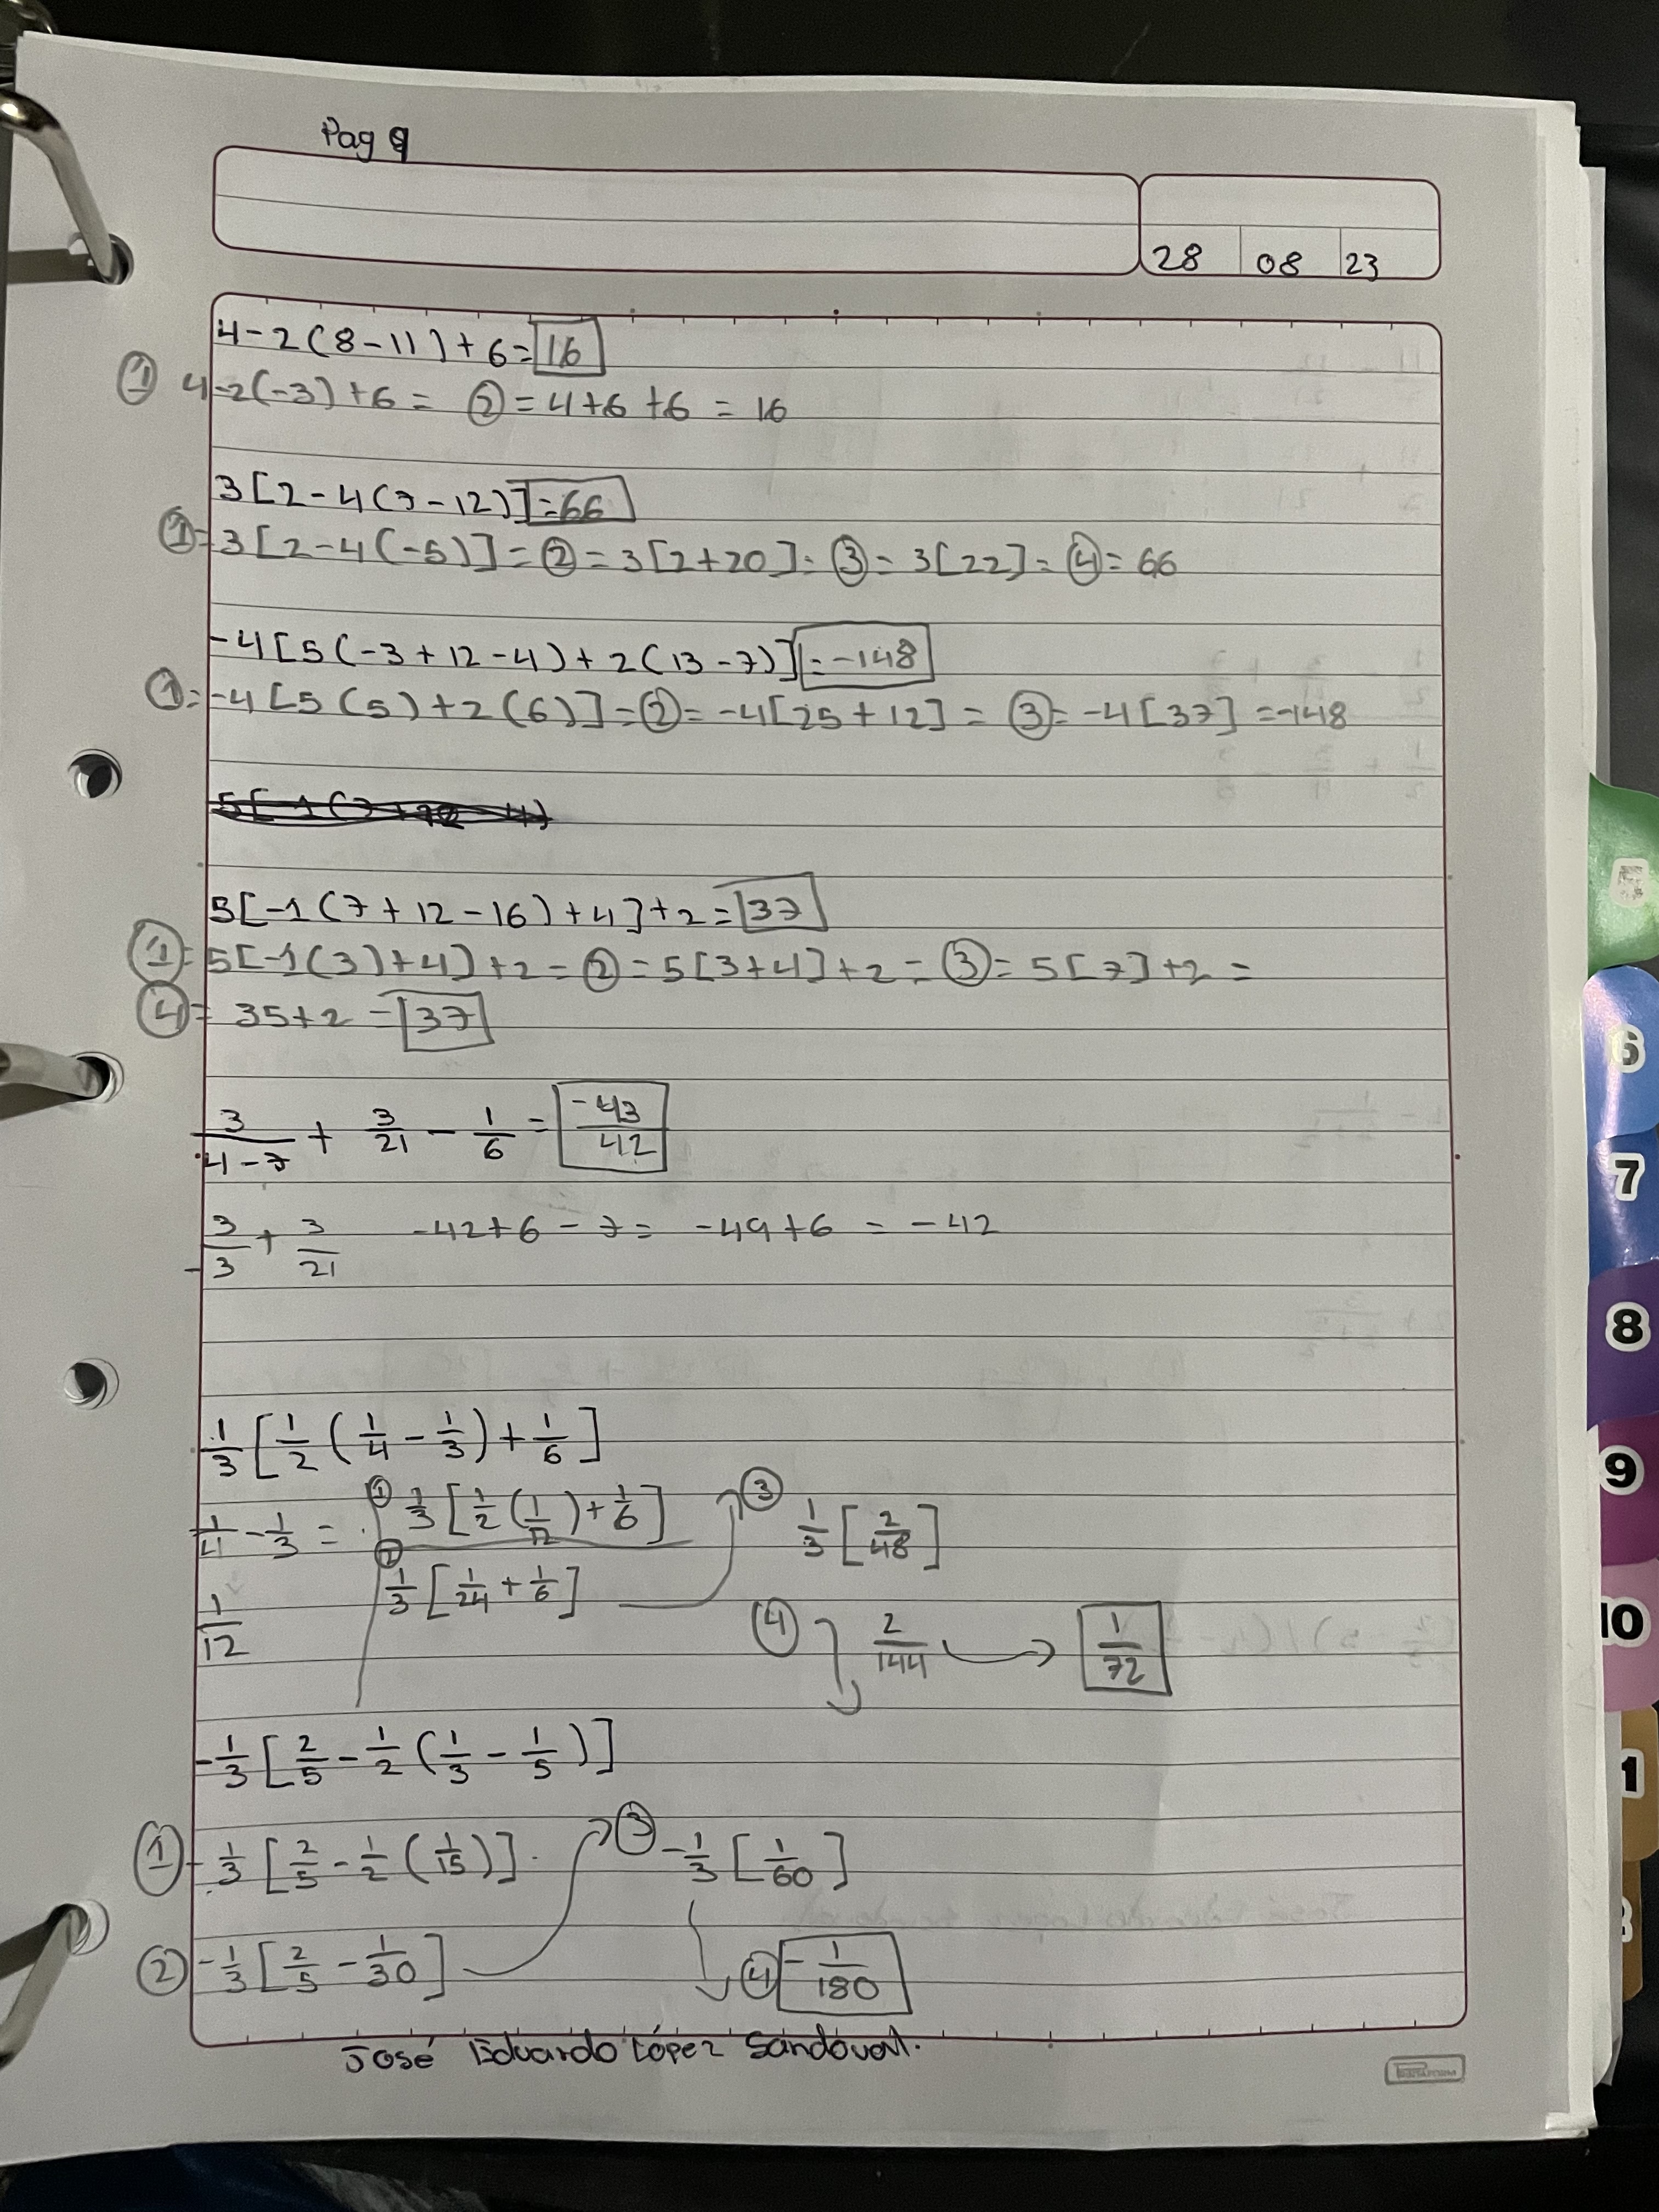 Pag 9
28 08 23
4-2(8-11)+6=16
① 4-2(-3)+6= ②=4+6+6=16
3[2-4(7-12)]=66
①=3[2-4(-5)]=②=3[2+20]=③=3[22]=④=66
-4[5(-3+12-4)+2(13-7)]=-148
①=-4[5(5)+2(6)]=②=-4[25+12]=③=-4[37]=-148
5[-1(7+12-16)+4]+2=37
①=5[-1(3)+4]+2=②=5[3+4]+2=③=5[7]+2=
④=35+2=37
3/(4-7) + 3/21 - 1/6 = -43/42
3/-3 + 3/21 -42+6-7= -49+6=-42
1/3[1/2(1/4-1/3)+1/6]
1/4-1/3= ① 1/3[1/2(1/12)+1/6] ③ 1/3[2/48]
1/12 ② 1/3[1/24+1/6] ④ 2/144 → 1/72
-1/3[2/5-1/2(1/3-1/5)]
① -1/3[2/5-1/2(1/15)]. ③ -1/3[1/60]
② -1/3[2/5-1/30] ④ -1/180
José Eduardo López Sandoval.
6
7
8
9
10
1